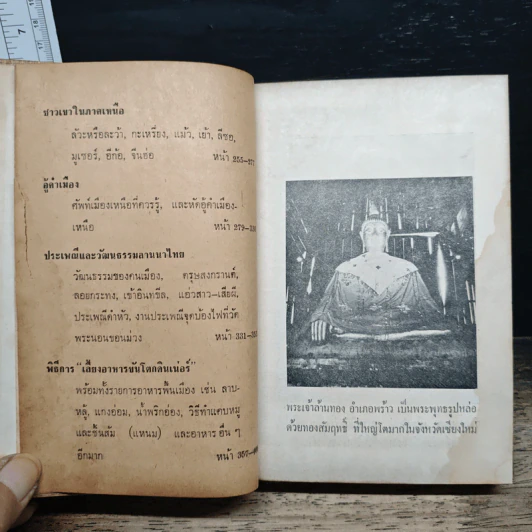 ชาวเขาในภาคเหนือ
ลัวะหรือละว้า, กะเหรี่ยง, แม้ว, เย้า, ลีซอ,
มูเซอร์, อีก้อ, จีนฮ่อ หน้า 255-277
อู้คำเมือง
ศัพท์เมืองเหนือที่ควรรู้, และหัดอู้คำเมือง-
เหนือ หน้า 279-
ประเพณีและวัฒนธรรมลานนาไทย
วัฒนธรรมของคนเมือง, ตรุษสงกรานต์,
ลอยกระทง, เข้าอินทขีล, แอ่วสาว-เสียผี,
ประเพณีดำหัว, งานประเพณีจุดบ้องไฟที่วัด
พระนอนขอนม่วง หน้า 331-
พิธีการ "เลี้ยงอาหารขันโตกดินเน่อร์"
พร้อมทั้งรายการอาหารพื้นเมือง เช่น ลาบ-
หลู้, แกงอ่อม, น้ำพริกอ่อง, วิธีทำแคบหมู
และชิ้นส้ม (แหนม) และอาหารอื่น ๆ
อีกมาก หน้า 357-
พระเจ้าล้านทอง อำเภอพร้าว เป็นพระพุทธรูปหล่อ
ด้วยทองสัมฤทธิ์ ที่ใหญ่โตมากในจังหวัดเชียงใหม่